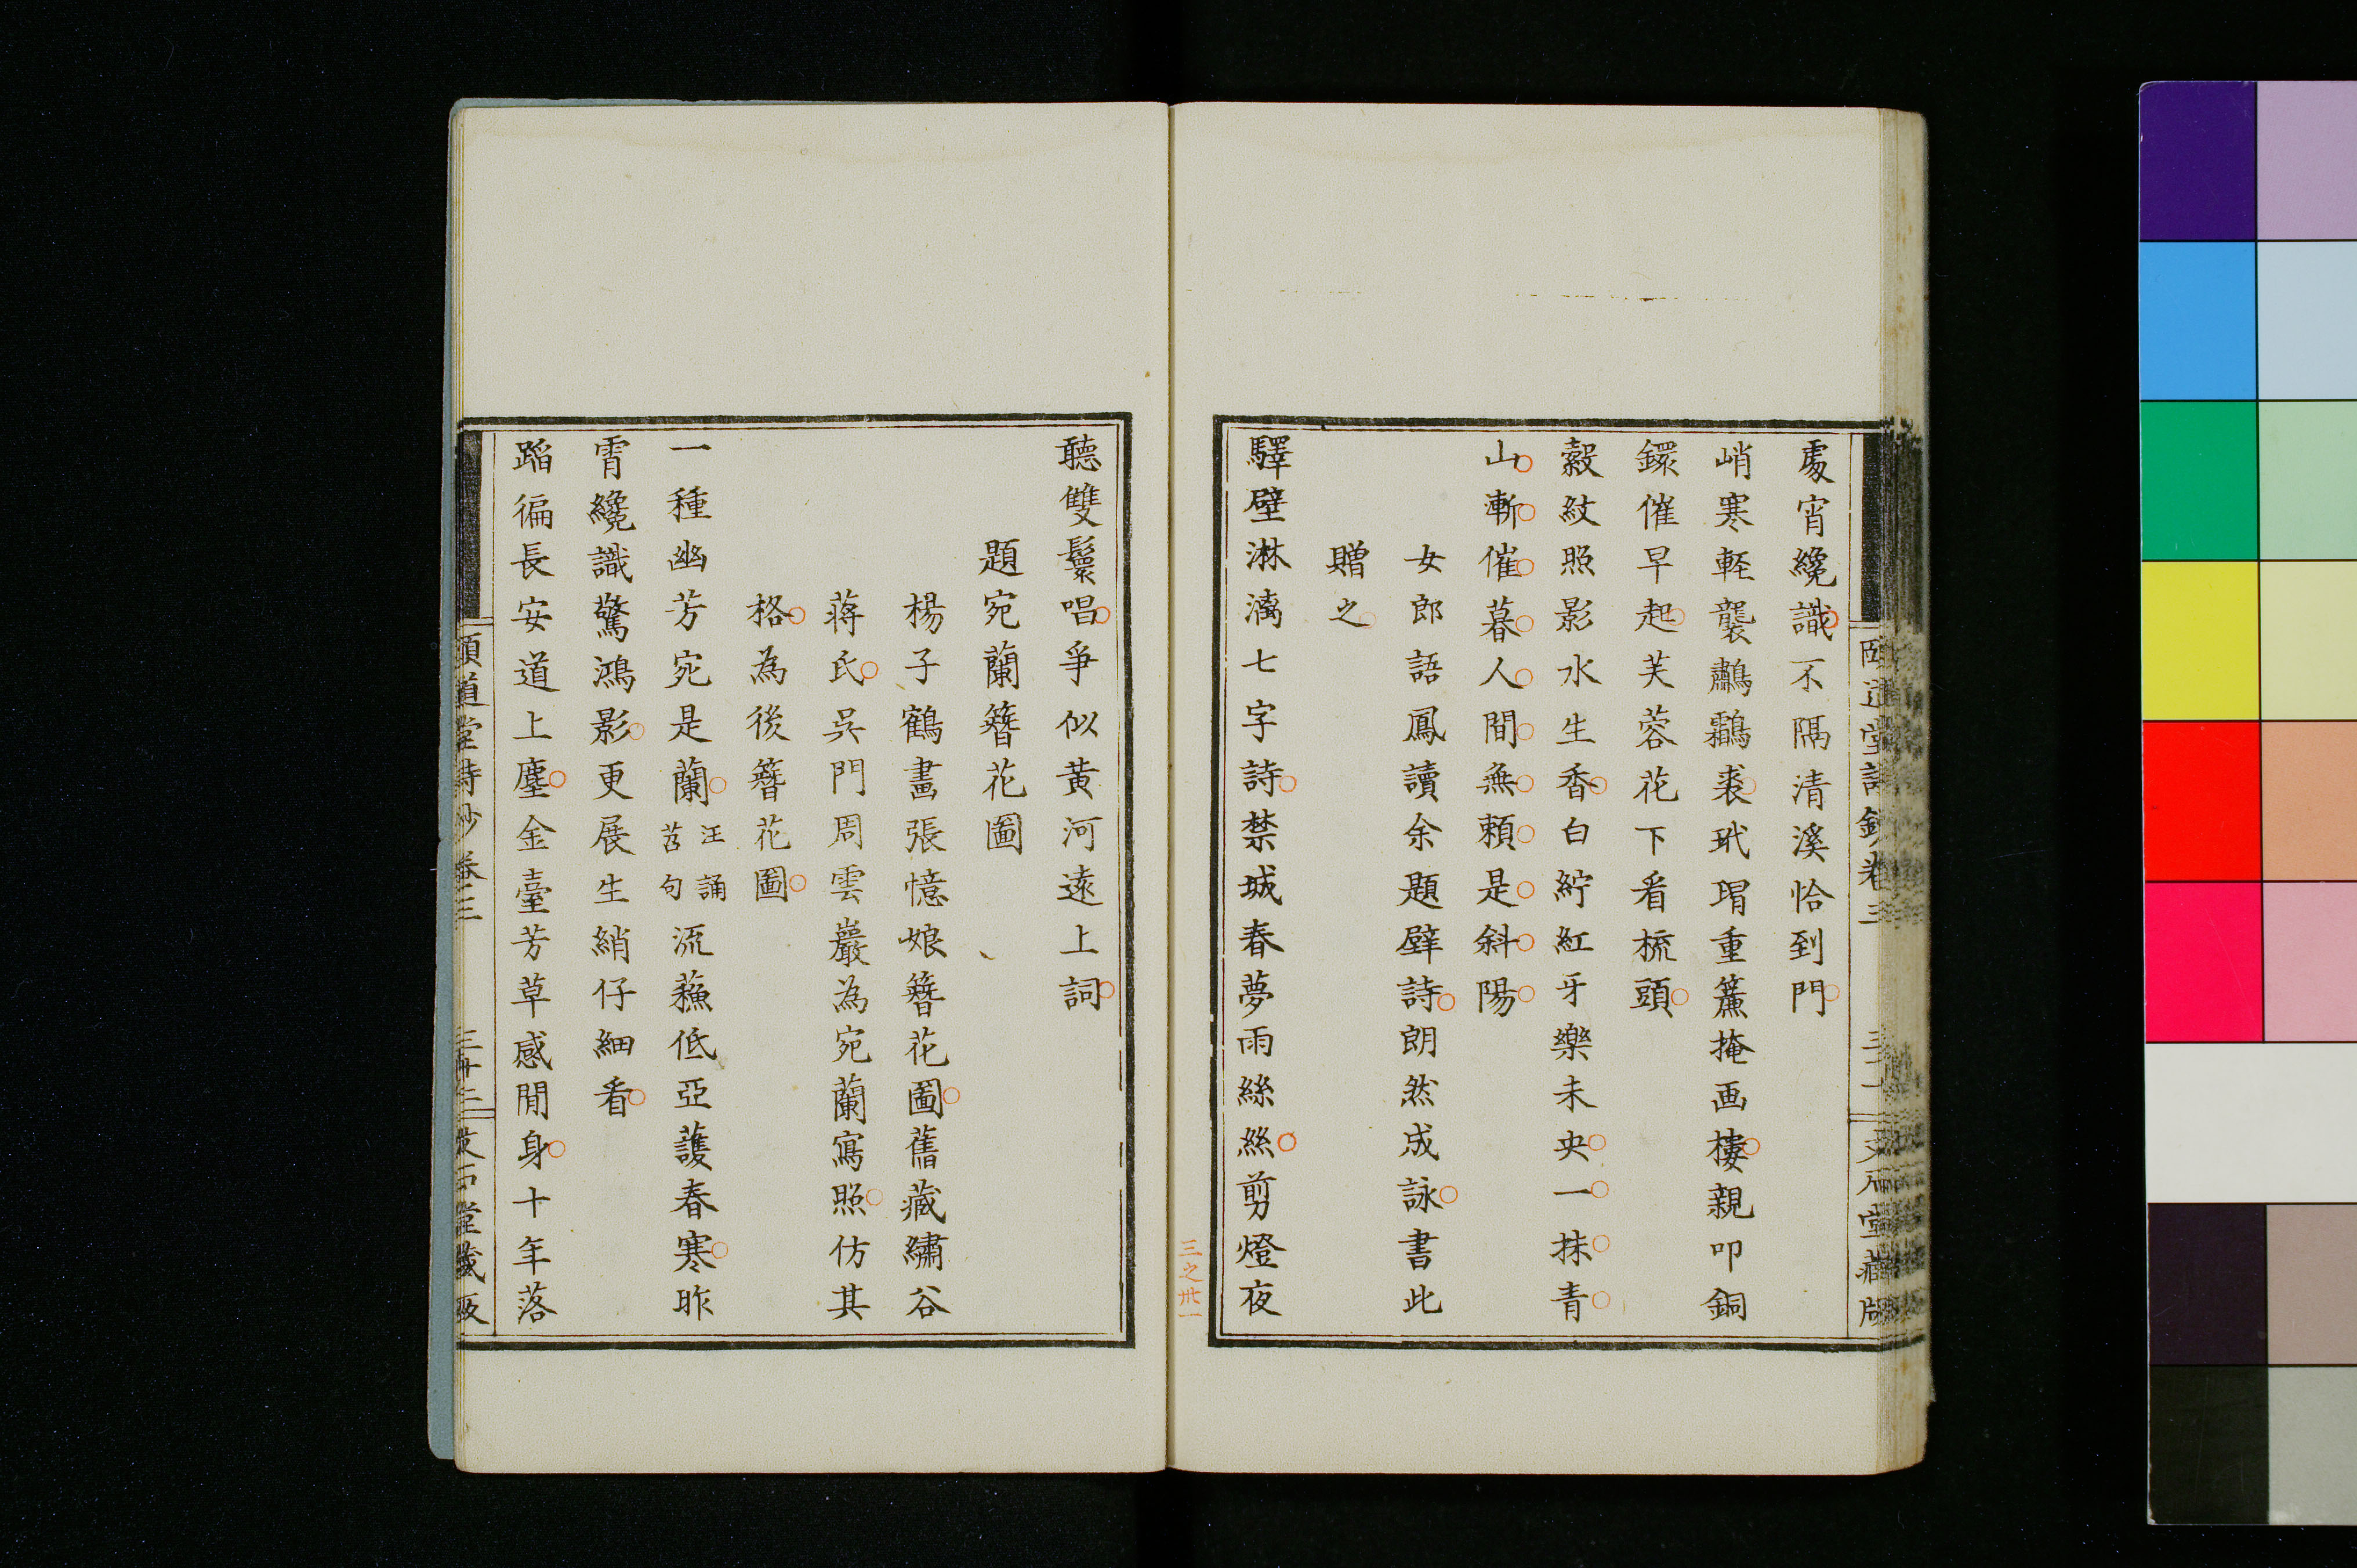 處宵纔識不隔清溪恰到門
峭寒輕襲鷫鸘裘玳瑁重簾掩画樓親叩銅
鐶催早起芙蓉花下看梳頭
縠紋照影水生香白紵紅牙樂未央一抹青
山漸催暮人間無賴是斜陽
女郎語鳳讀余題壁詩朗然成詠書此
贈之
驛壁淋漓七字詩禁城春夢雨絲絲剪燈夜
三之卅一
聽雙鬟唱爭似黃河遠上詞
題宛蘭簪花圖
楊子鶴畫張憶娘簪花圖舊藏繡谷
蔣氏吳門周雲巖為宛蘭寫照仿其
格為後簪花圖
一種幽芳宛是蘭汪誦苕句流蘓低亞護春寒昨
霄纔識驚鴻影更展生綃仔細看
蹈徧長安道上塵金臺芳草感閒身十年落
頤道堂詩鈔卷三